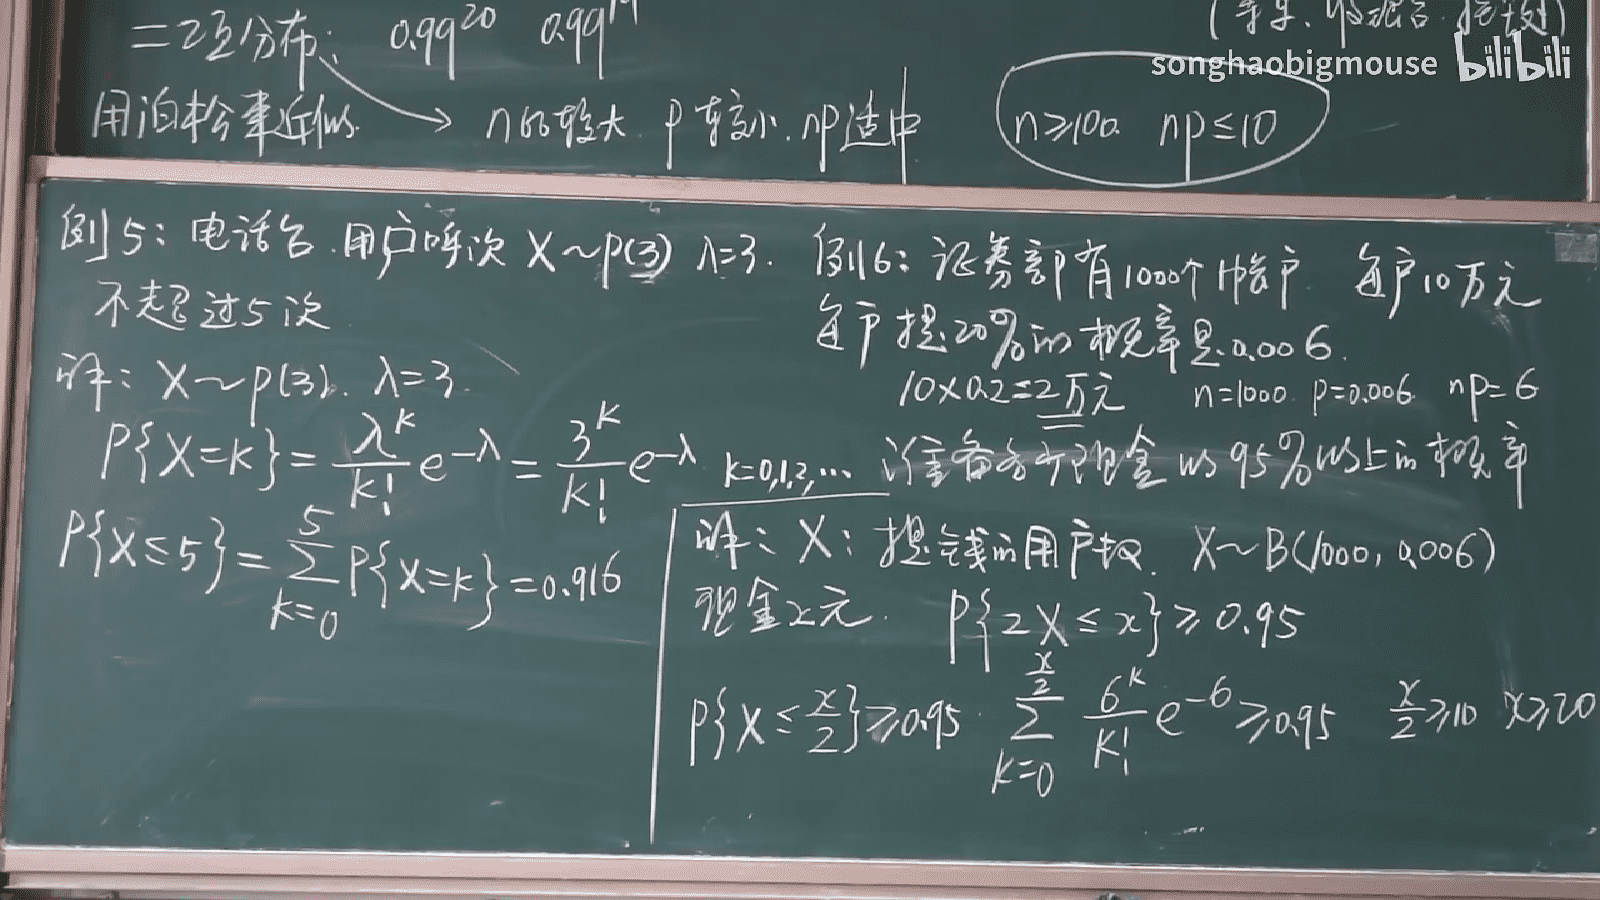 二项分布: 0.99²⁰ 0.99¹⁹
songhaobigmouse bilibili
用泊松来近似 → n比较大 p较小 np适中 n≥100 np≤10
例5: 电话台 用户呼次 X~P(3) λ=3.
不超过5次
解: X~P(3). λ=3.
P{X=K}=λᴷ/K! e^-λ = 3ᴷ/K! e^-λ K=0,1,2,…
P{X≤5}=∑_{K=0}^{5} P{X=K}=0.916
例6: 证券部有1000个帐户 每户10万元
每户提20%的概率是0.006.
10×0.2=2万元 n=1000 p=0.006 np=6
准备多少现金 以95%以上的概率
解: X: 提钱的用户数. X~B(1000, 0.006)
现金x元. P{2X≤x}≥0.95
P{X≤x/2}≥0.95 ∑_{K=0}^{x/2} 6ᴷ/K! e⁻⁶≥0.95 x/2≥10 x≥20